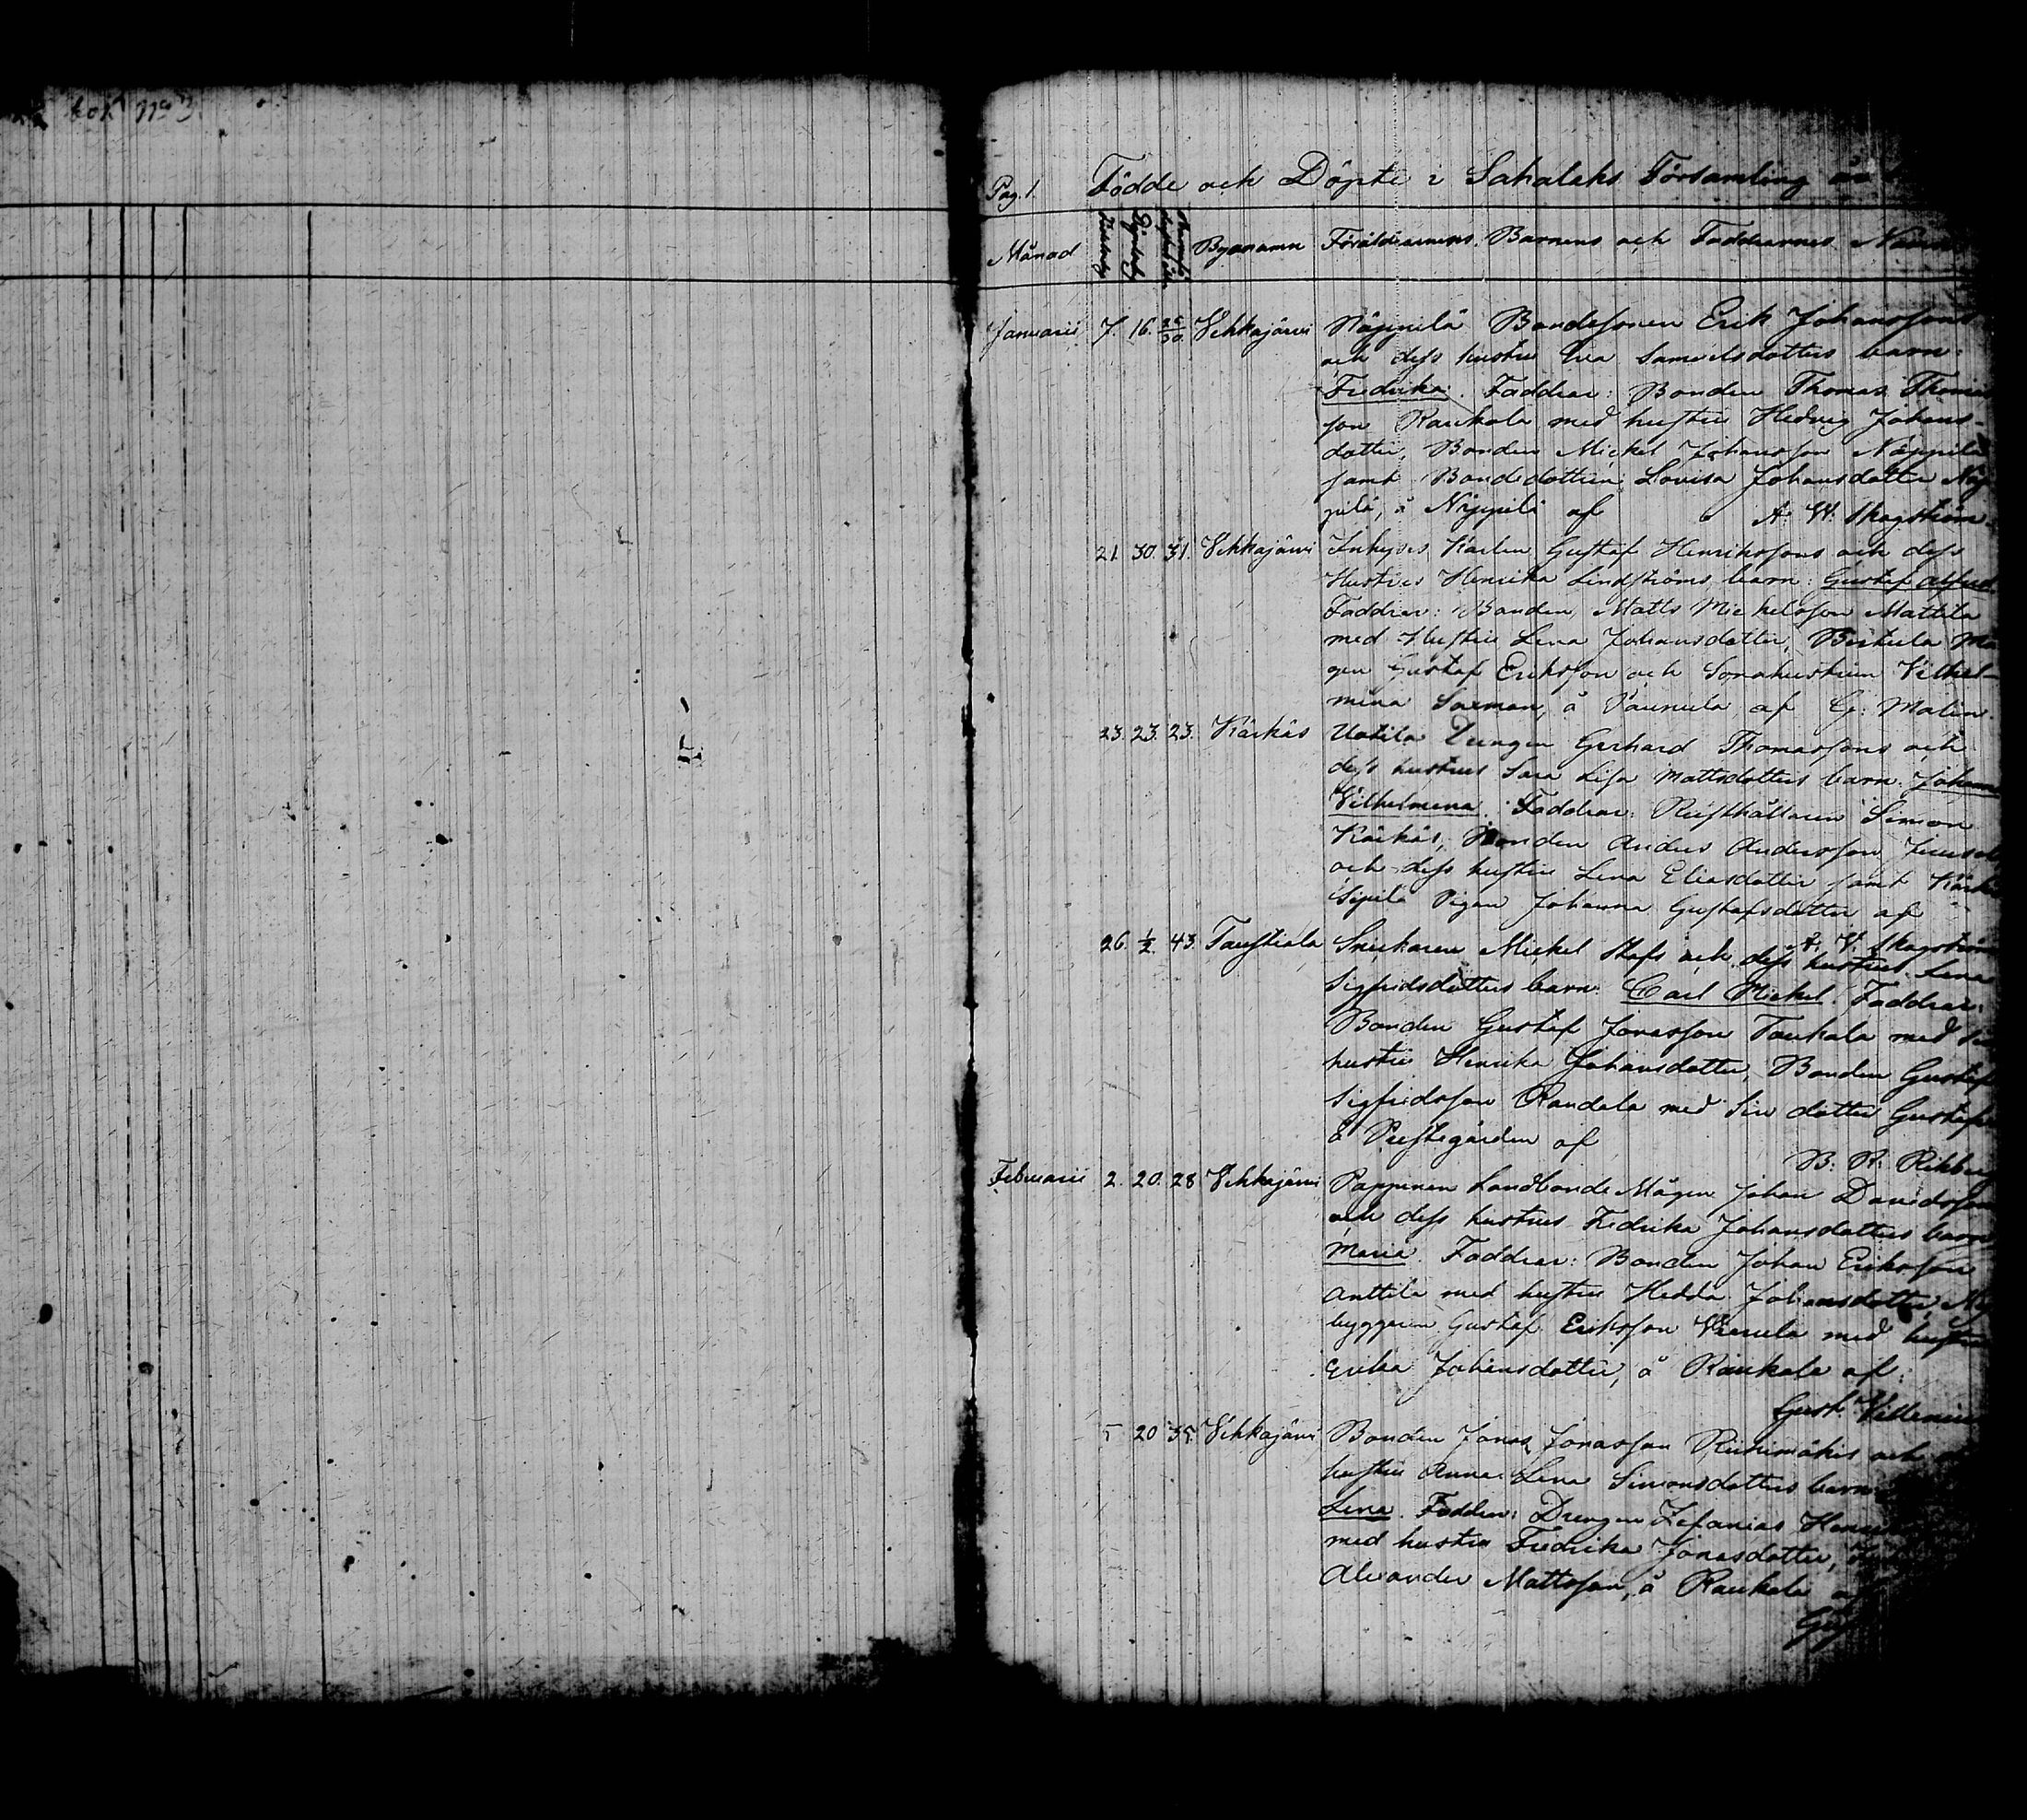 bok No 3.
Pag. 1. Födde och Döpte i Sahalaks Församling år
Månad Byanamn Föräldrarnes, Barnens och Faddrarnes Namn
Januarii 7. 16. 26/30. Vehkajärvi Näppilä Bondesonen Erik Johanssons
och dess hustru Eva Samuelsdotters barn:
Fredrika. Faddrar: Bonden Thomas Thomas
son Raukola med hustru Hedvig Johans-
dotter, Bonden Mickel Johansson Näppilä
samt Bondedottren Lovisa Johansdotter Näp
pilä, å Näppilä af A. W. Skogström
21. 30. 31. Vehkajärvi Inhyses Karlen Gustaf Henrikssons och dess
Hustrus Henrika Lindströms barn: Gustaf Alfred
Faddrar: Bonden Matts Mickelsson Mattila
med Hustru Lena Johansdotter, Må
gen Gustaf Eriksson och Sonahustrun Vilhel-
mina Saxman, å af G: Malin.
23. 23. 23. Kärkäs Uotila Drengen Gerhard Thomassons och
dess hustrus Sara Lisa Mattsdotters barn: Johanna
Vilhelmina. Faddrar: Rusthållaren Simon
Kärkäs, Bonden Anders Andersson
och dess hustru Lena Eliasdotter samt
Sipilä Pigan Johanna Gustafsdotter af
A. W. Skogström
26. ½. 43. Taustiala Snickaren Mickel och dess hustrus Lena
Sigfridsdotters barn: Carl Mickel. Faddrar:
Bonden Gustaf Jonasson Taukala med
hustru Henrika Johansdotter, Bonden Gustaf
Sigfridsson Randala med Sin dotter Gustafv
å Prestegården af
B: R:
Februarii 2. 20. 28 Vehkajärvi Pappinen Landbonde Mågen Johan Davidsson
och dess hustrus Fredrika Johansdotters barn
Maria. Faddrar: Bonden Johan Eriksson
Anttila med hustru Hedda Johansdotter Ny
byggaren Gustaf Eriksson med hustru
Erika Johansdotter, å Raukola af:
Gust. Villenius
5 20 35. Vehkajärvi Bonden Jonas Jonasson Riihimäkis och
hustru Anna Lena Simonsdotters barn
Lena. Faddrar: Drengen Zefanias
med hustru Fredrika Jonasdotter,
Alexander Mattsson, å Raukola af